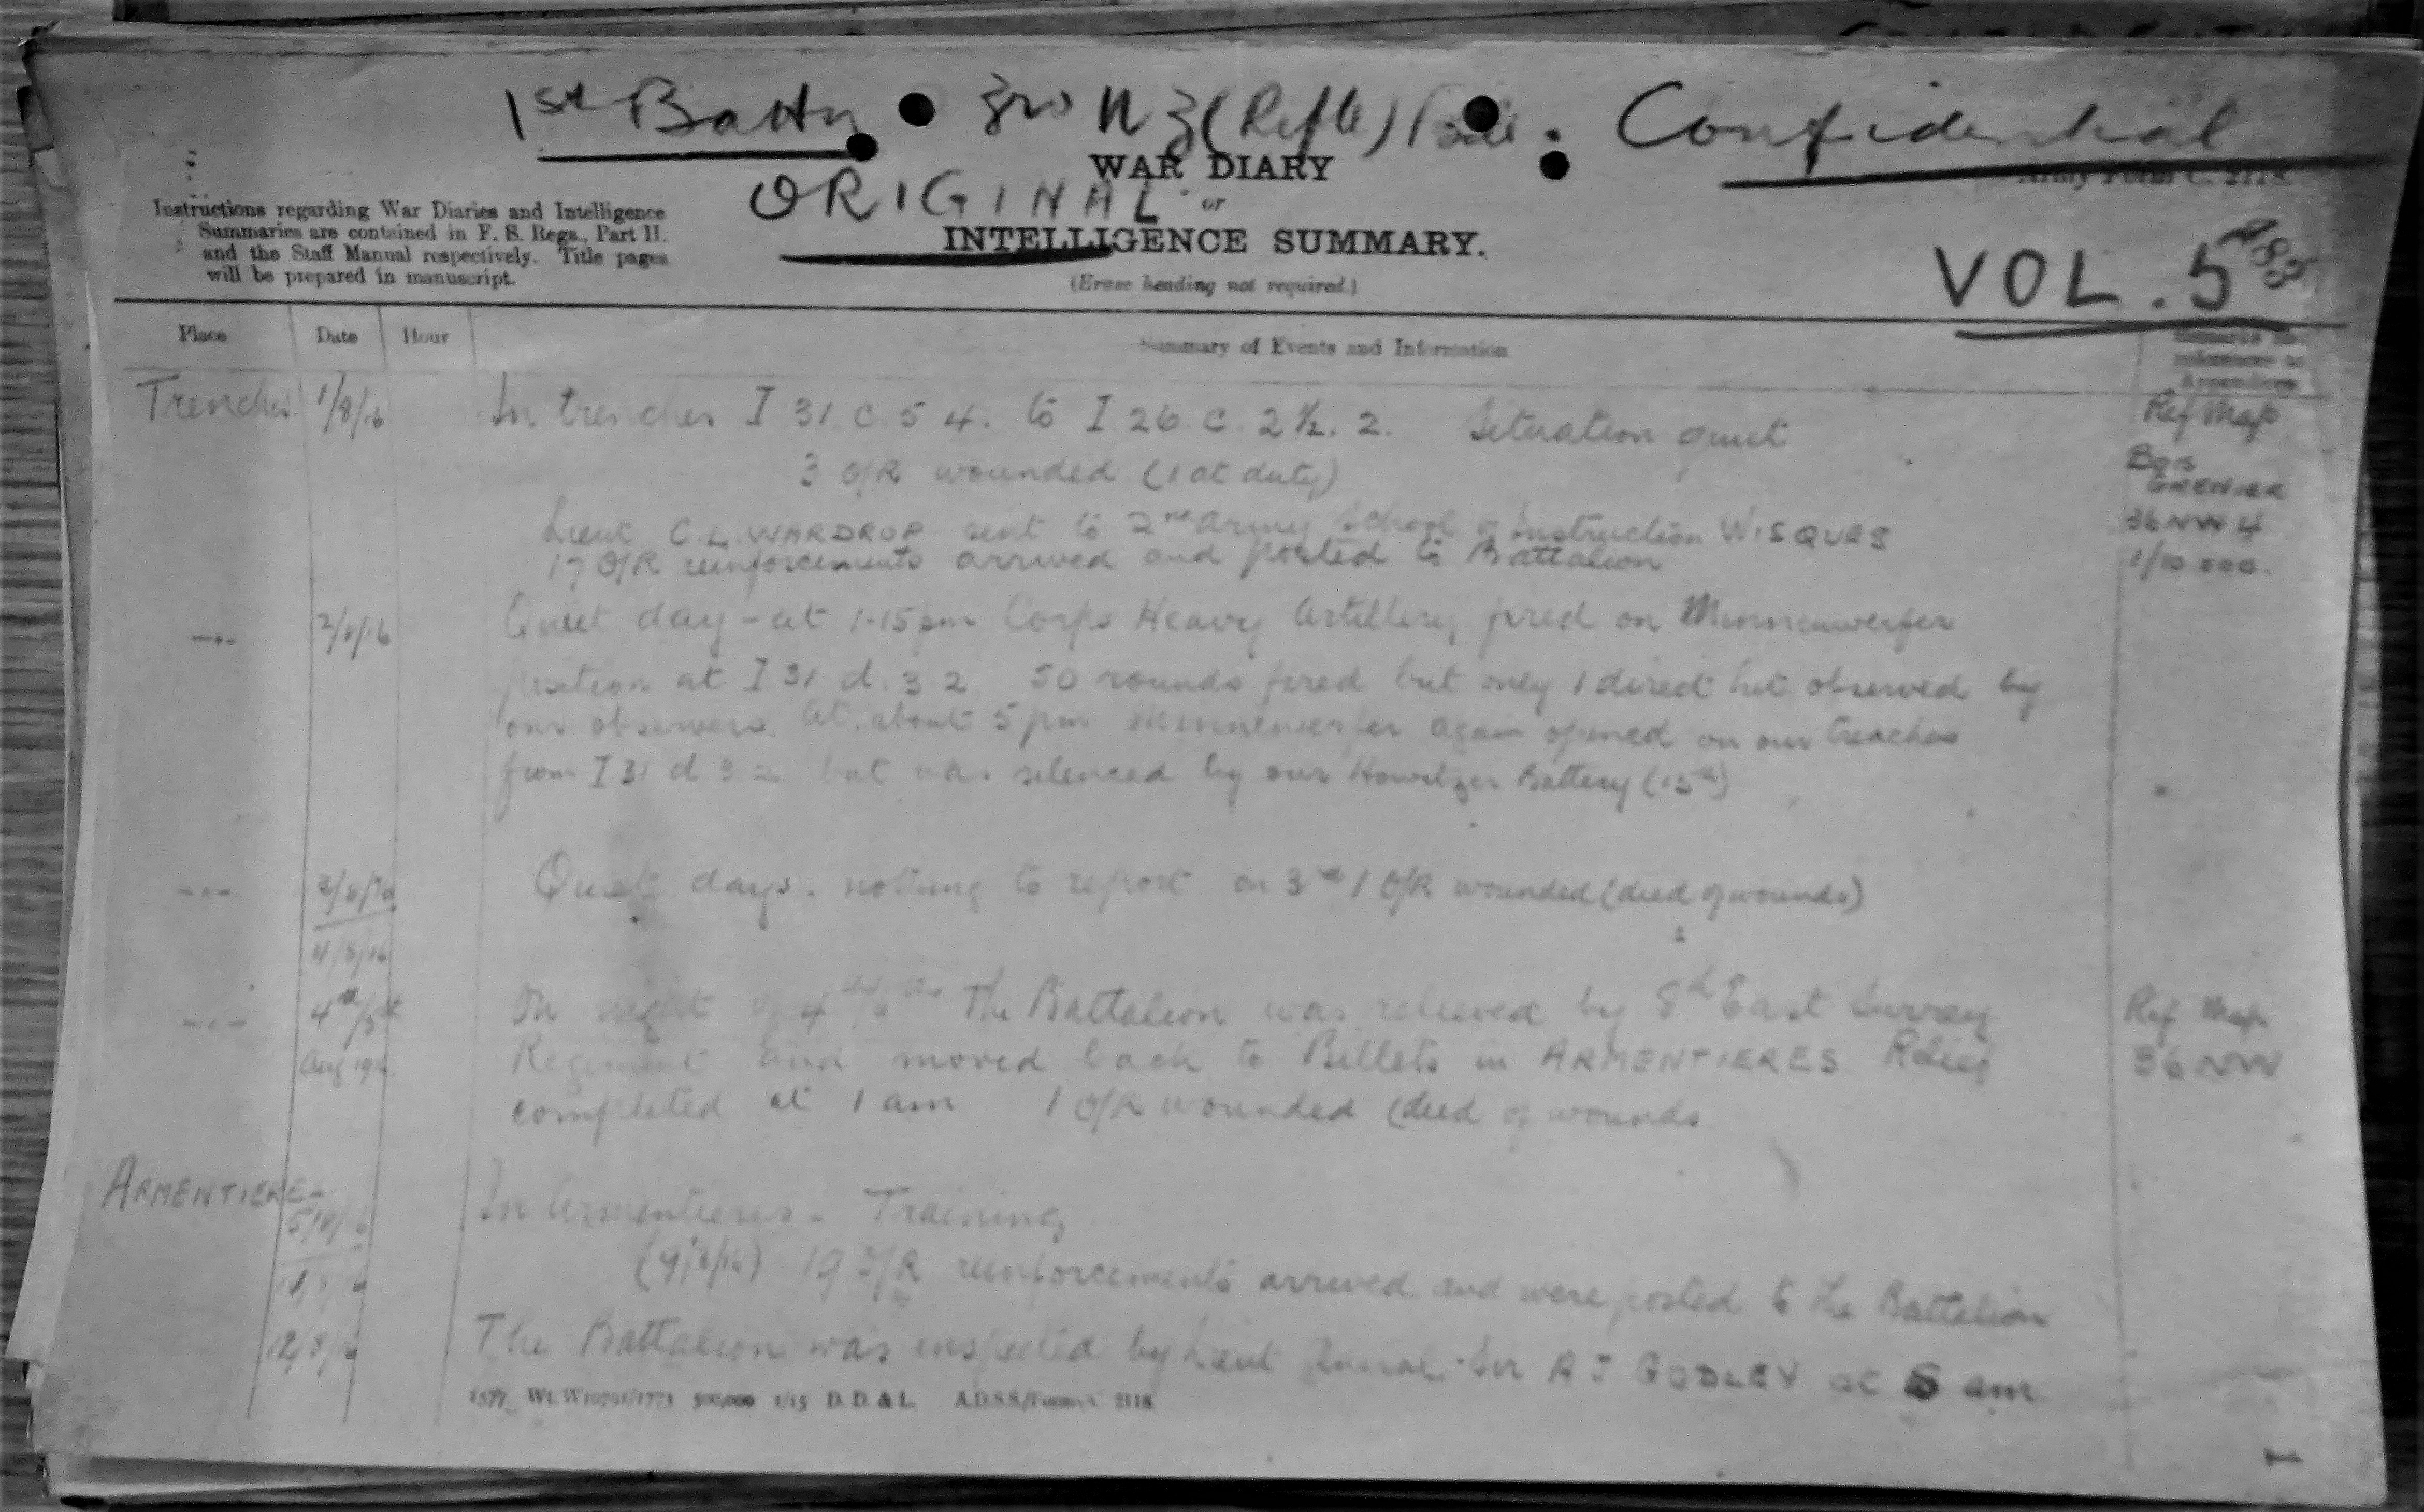 1st Battn 3rd N Z (Rifle) Bde. Confidential
WAR DIARY
Army Form C. 2118.
ORIGINAL or
INTELLIGENCE SUMMARY.
(Erase heading not required.)
Instructions regarding War Diaries and Intelligence
Summaries are contained in F. S. Regs., Part II.
and the Staff Manual respectively. Title pages
will be prepared in manuscript.
VOL. 5
Place Date Hour Summary of Events and Information
Remarks and
references to
Appendices
Trenches 1/8/16 In trenches I 31 c. 5 4. to I 26 c. 2½. 2. Situation quiet
Ref Map
3 O/R wounded (1 at duty)
BOIS
GRENIER
Lieut C.L. WARDROP sent to 2nd Army School of Instruction WISQUES
36 NW 4
17 O/R reinforcements arrived and posted to Battalion
1/10.000.
2/8/16 Quiet day - at 1-15 pm Corps Heavy Artillery fired on Minnenwerfer
position at I 31 d. 3 2 50 rounds fired but only 1 direct hit observed by
our observers. At about 5 pm Minnenwerfer again opened on our trenches
from I 31 d 3 2 but was silenced by our Howitzer Battery (15th)
3/8/16 Quiet days. nothing to report on 3rd 1 O/R wounded (died of wounds)
4/8/16
4th/5th On night of 4th/5th The Battalion was relieved by 8th East Surrey
Ref Map
Aug 1916 Regiment and moved back to Billets in ARMENTIERES Relief
36 NW
completed at 1 am 1 O/R wounded (died of wounds
ARMENTIERES
5/8/16 In Armentieres - Training
(9/8/16) 19 O/R reinforcements arrived and were posted to the Battalion
12/8/16 The Battalion was inspected by Lieut General Sir A J GODLEY at am
D. D. & L. A.D.S.S./Forms/C. 2118
1